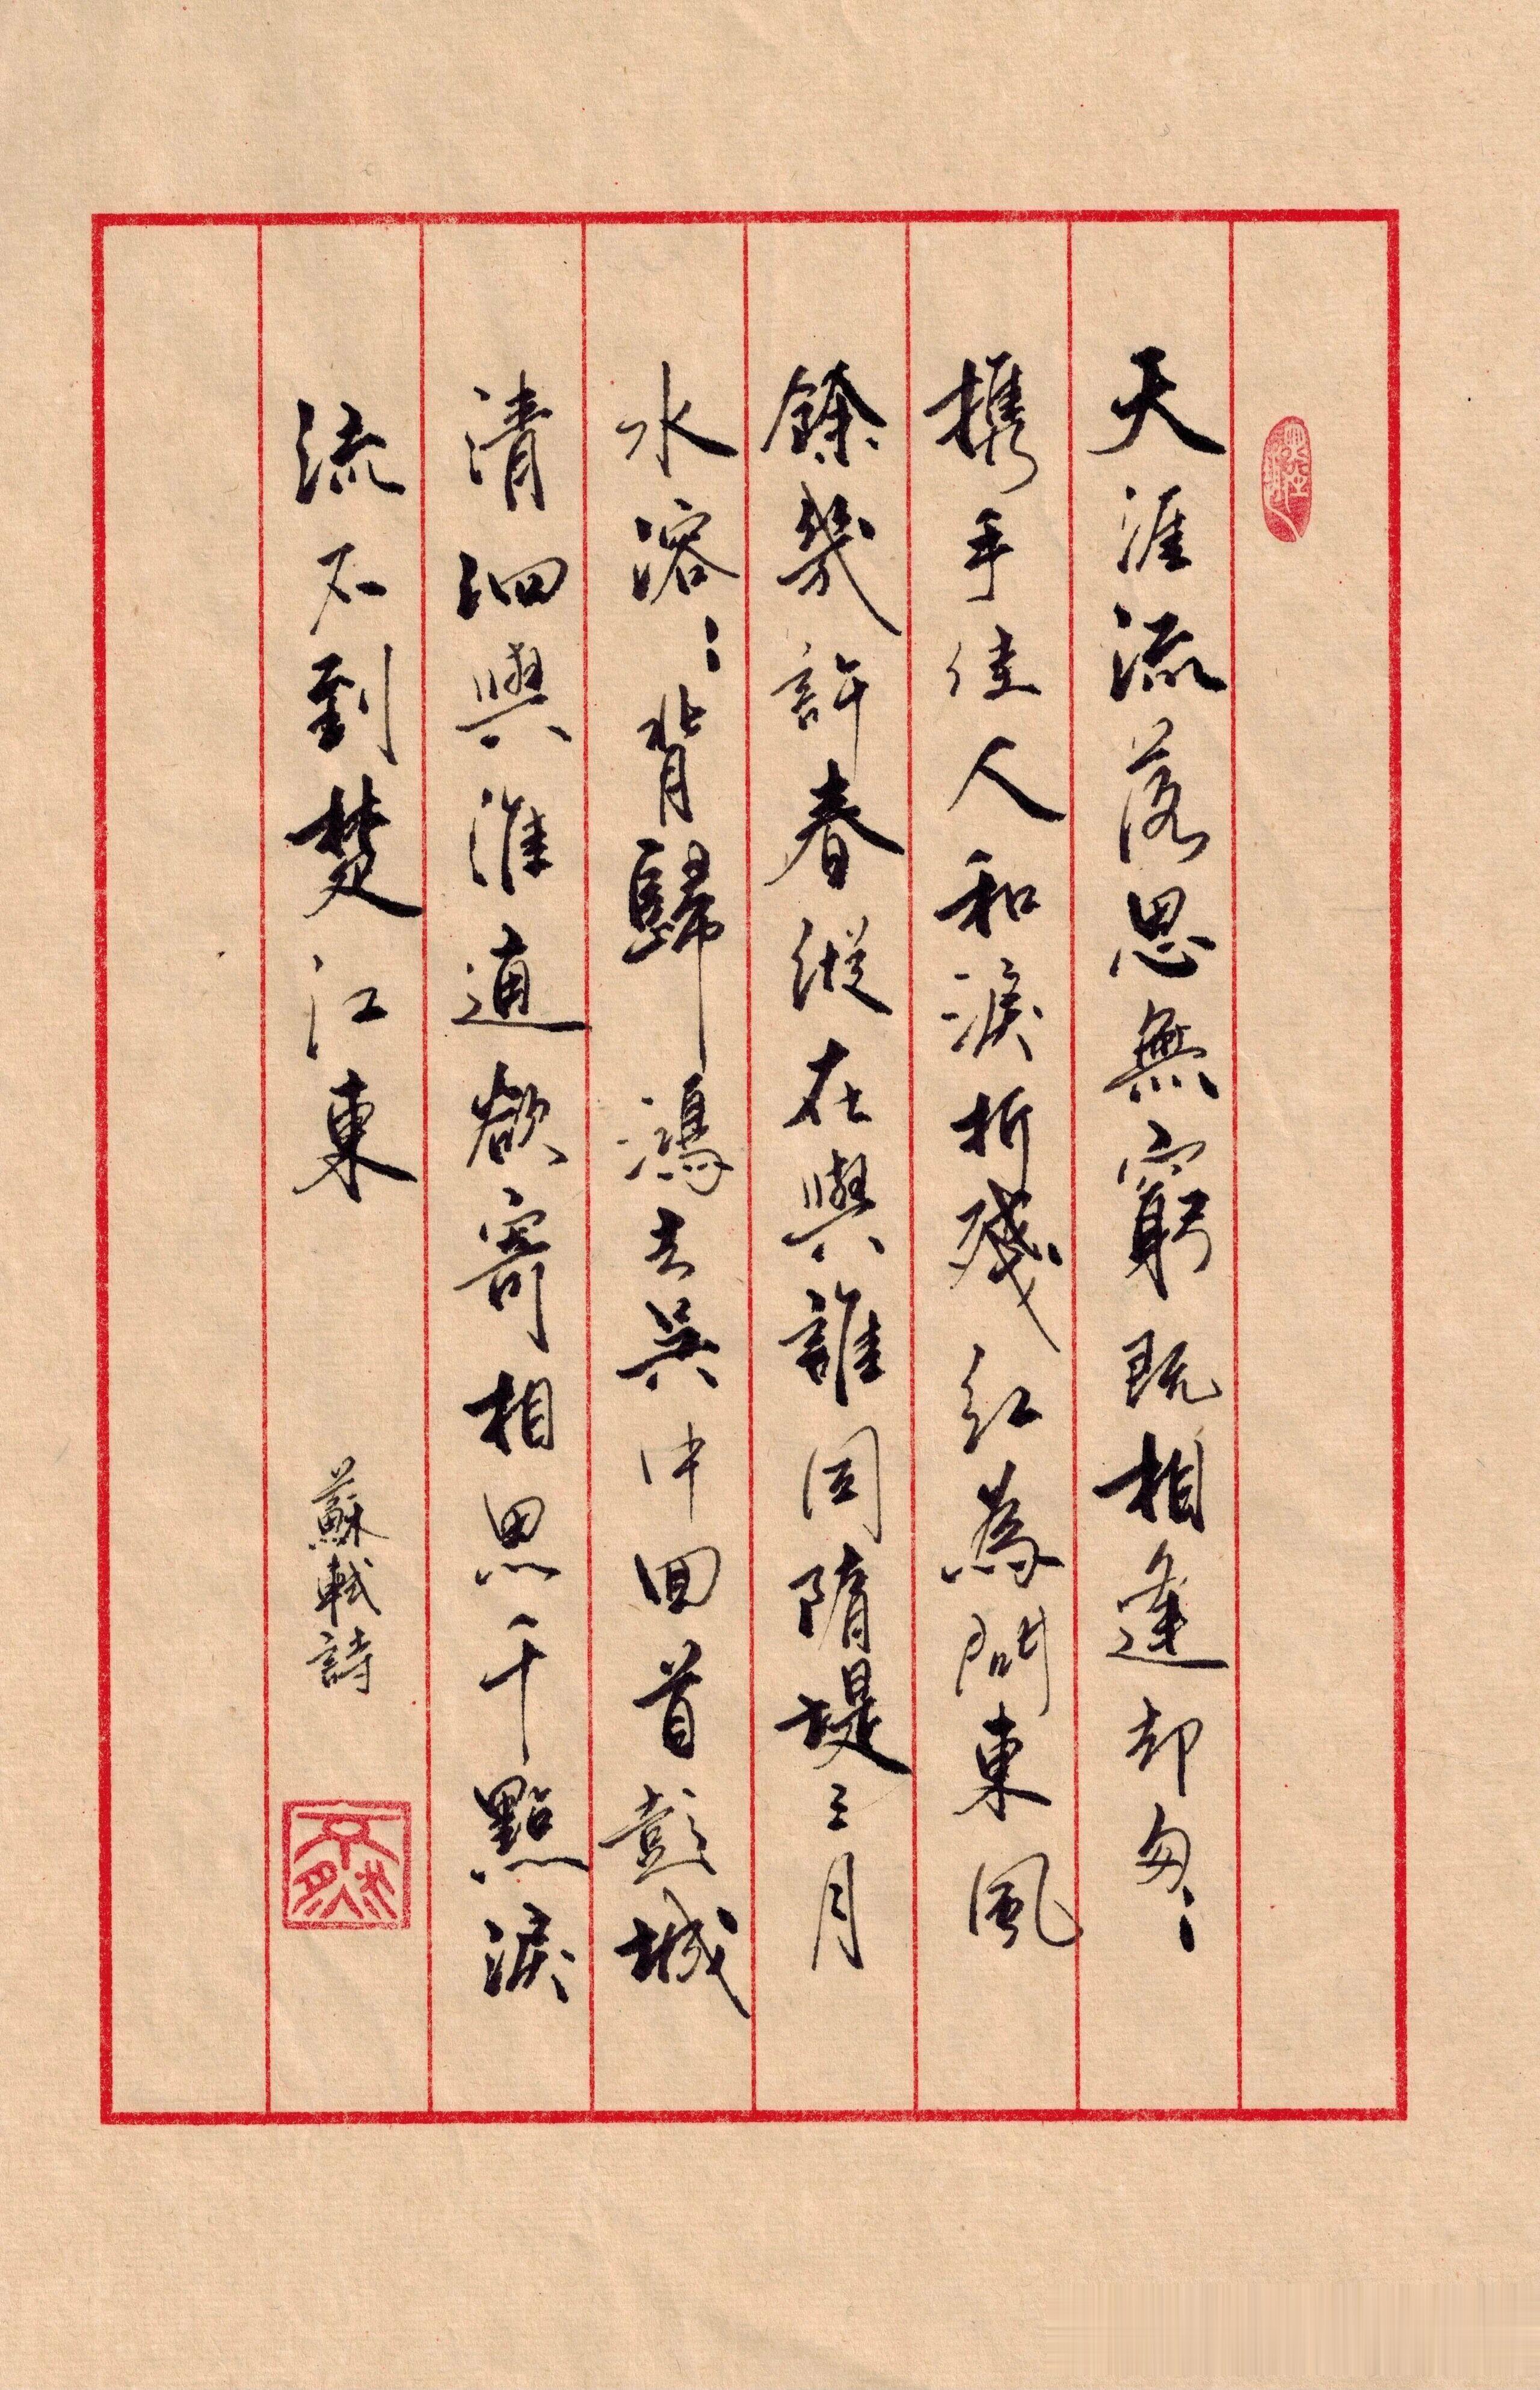 天涯流落思無窮既相逢却匆〻
攜手佳人和淚折殘紅為問東風
餘幾許春縱在與誰同隋堤三月
水溶〻背歸鴻去吳中回首彭城
清泗與淮通欲寄相思千點淚
流不到楚江東
蘇軾詩